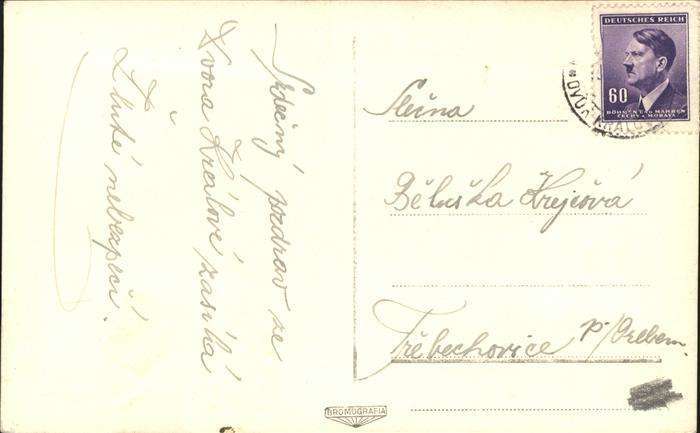 Srdečný pozdrav ze
Dvora Králové zasílá
Žluté nebezpečí.
DEUTSCHES REICH
60
BÖHMEN U. MÄHREN
ČECHY A MORAVA
DVŮR KRÁLOV
Slečna
Běluška Krejčová
Třebechovice p/Orebem.
BROMOGRAFIA